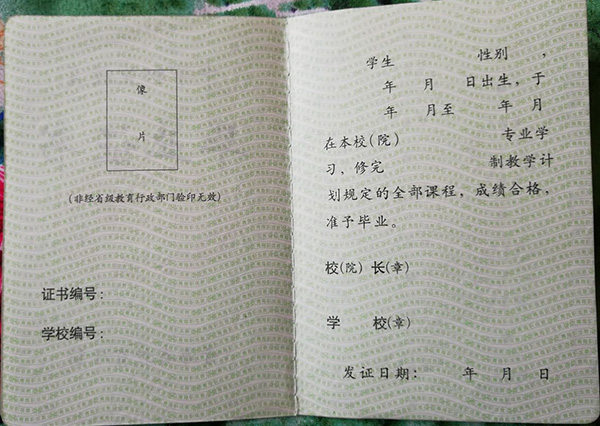 像
片
(非经省级教育行政部门验印无效)
证书编号：
学校编号：
学生 性别 ，
年 月 日出生，于
年 月至 年 月
在本校(院) 专业学
习，修完 制教学计
划规定的全部课程，成绩合格，
准予毕业。
校(院) 长(章)
学 校(章)
发证日期： 年 月 日